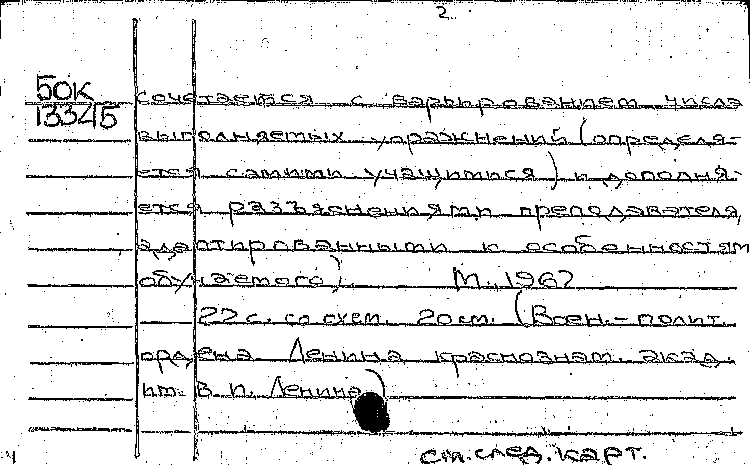 2.
50К
13345
сочетается с варьированием числа
выполняемых упражнений (определя-
ется самими учащимися) и дополня-
ется разъяснениями преподавателя,
адаптированными к особенностям
обучаемого). М., 1967
22 с. со схем. 20 см. (Воен.-полит.
ордена Ленина краснознам. акад.
им. В. И. Ленина)
см. след. карт.